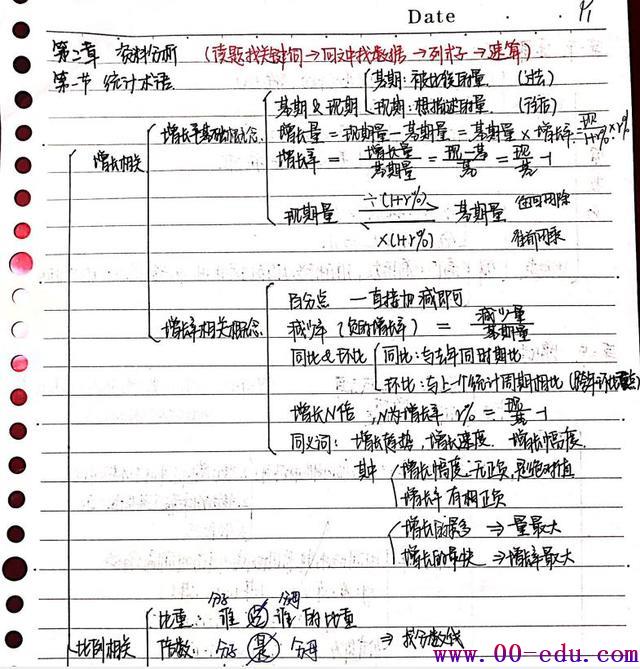 Date P1
第二章 资料分析 (读题找关键词→回文中找数据→列式子→速算)
第一节 统计术语
基期:被比较的量 (过去)
基期&现期 现期:想描述的量 (现在)
增长率基础概念 增长量=现期量-基期量=基期量×增长率=现/1+r%×r%
增长相关 增长率=增长量/基期量=现-基/基=现/基-1
现期量 ÷(1+r%) 基期量 往回用除
×(1+r%) 往前用乘
百分点 一直接加减即可
增长率相关概念 减少率(负的增长率)=减少量/基期量
同比&环比 同比:与去年同时期比
环比:与上一个统计周期相比
增长N倍,N为增长率 r%=现/基-1
同义词:增长趋势,增长速度.增长幅度.
其中 增长幅度-无正负,是绝对值
增长率有相正负
增长的最多⇒量最大
增长的最快⇒增长率最大
分子 分母
比重:谁占谁的比重
比例相关 倍数:分子是分母 ⇒找分数线
www.00-edu.com